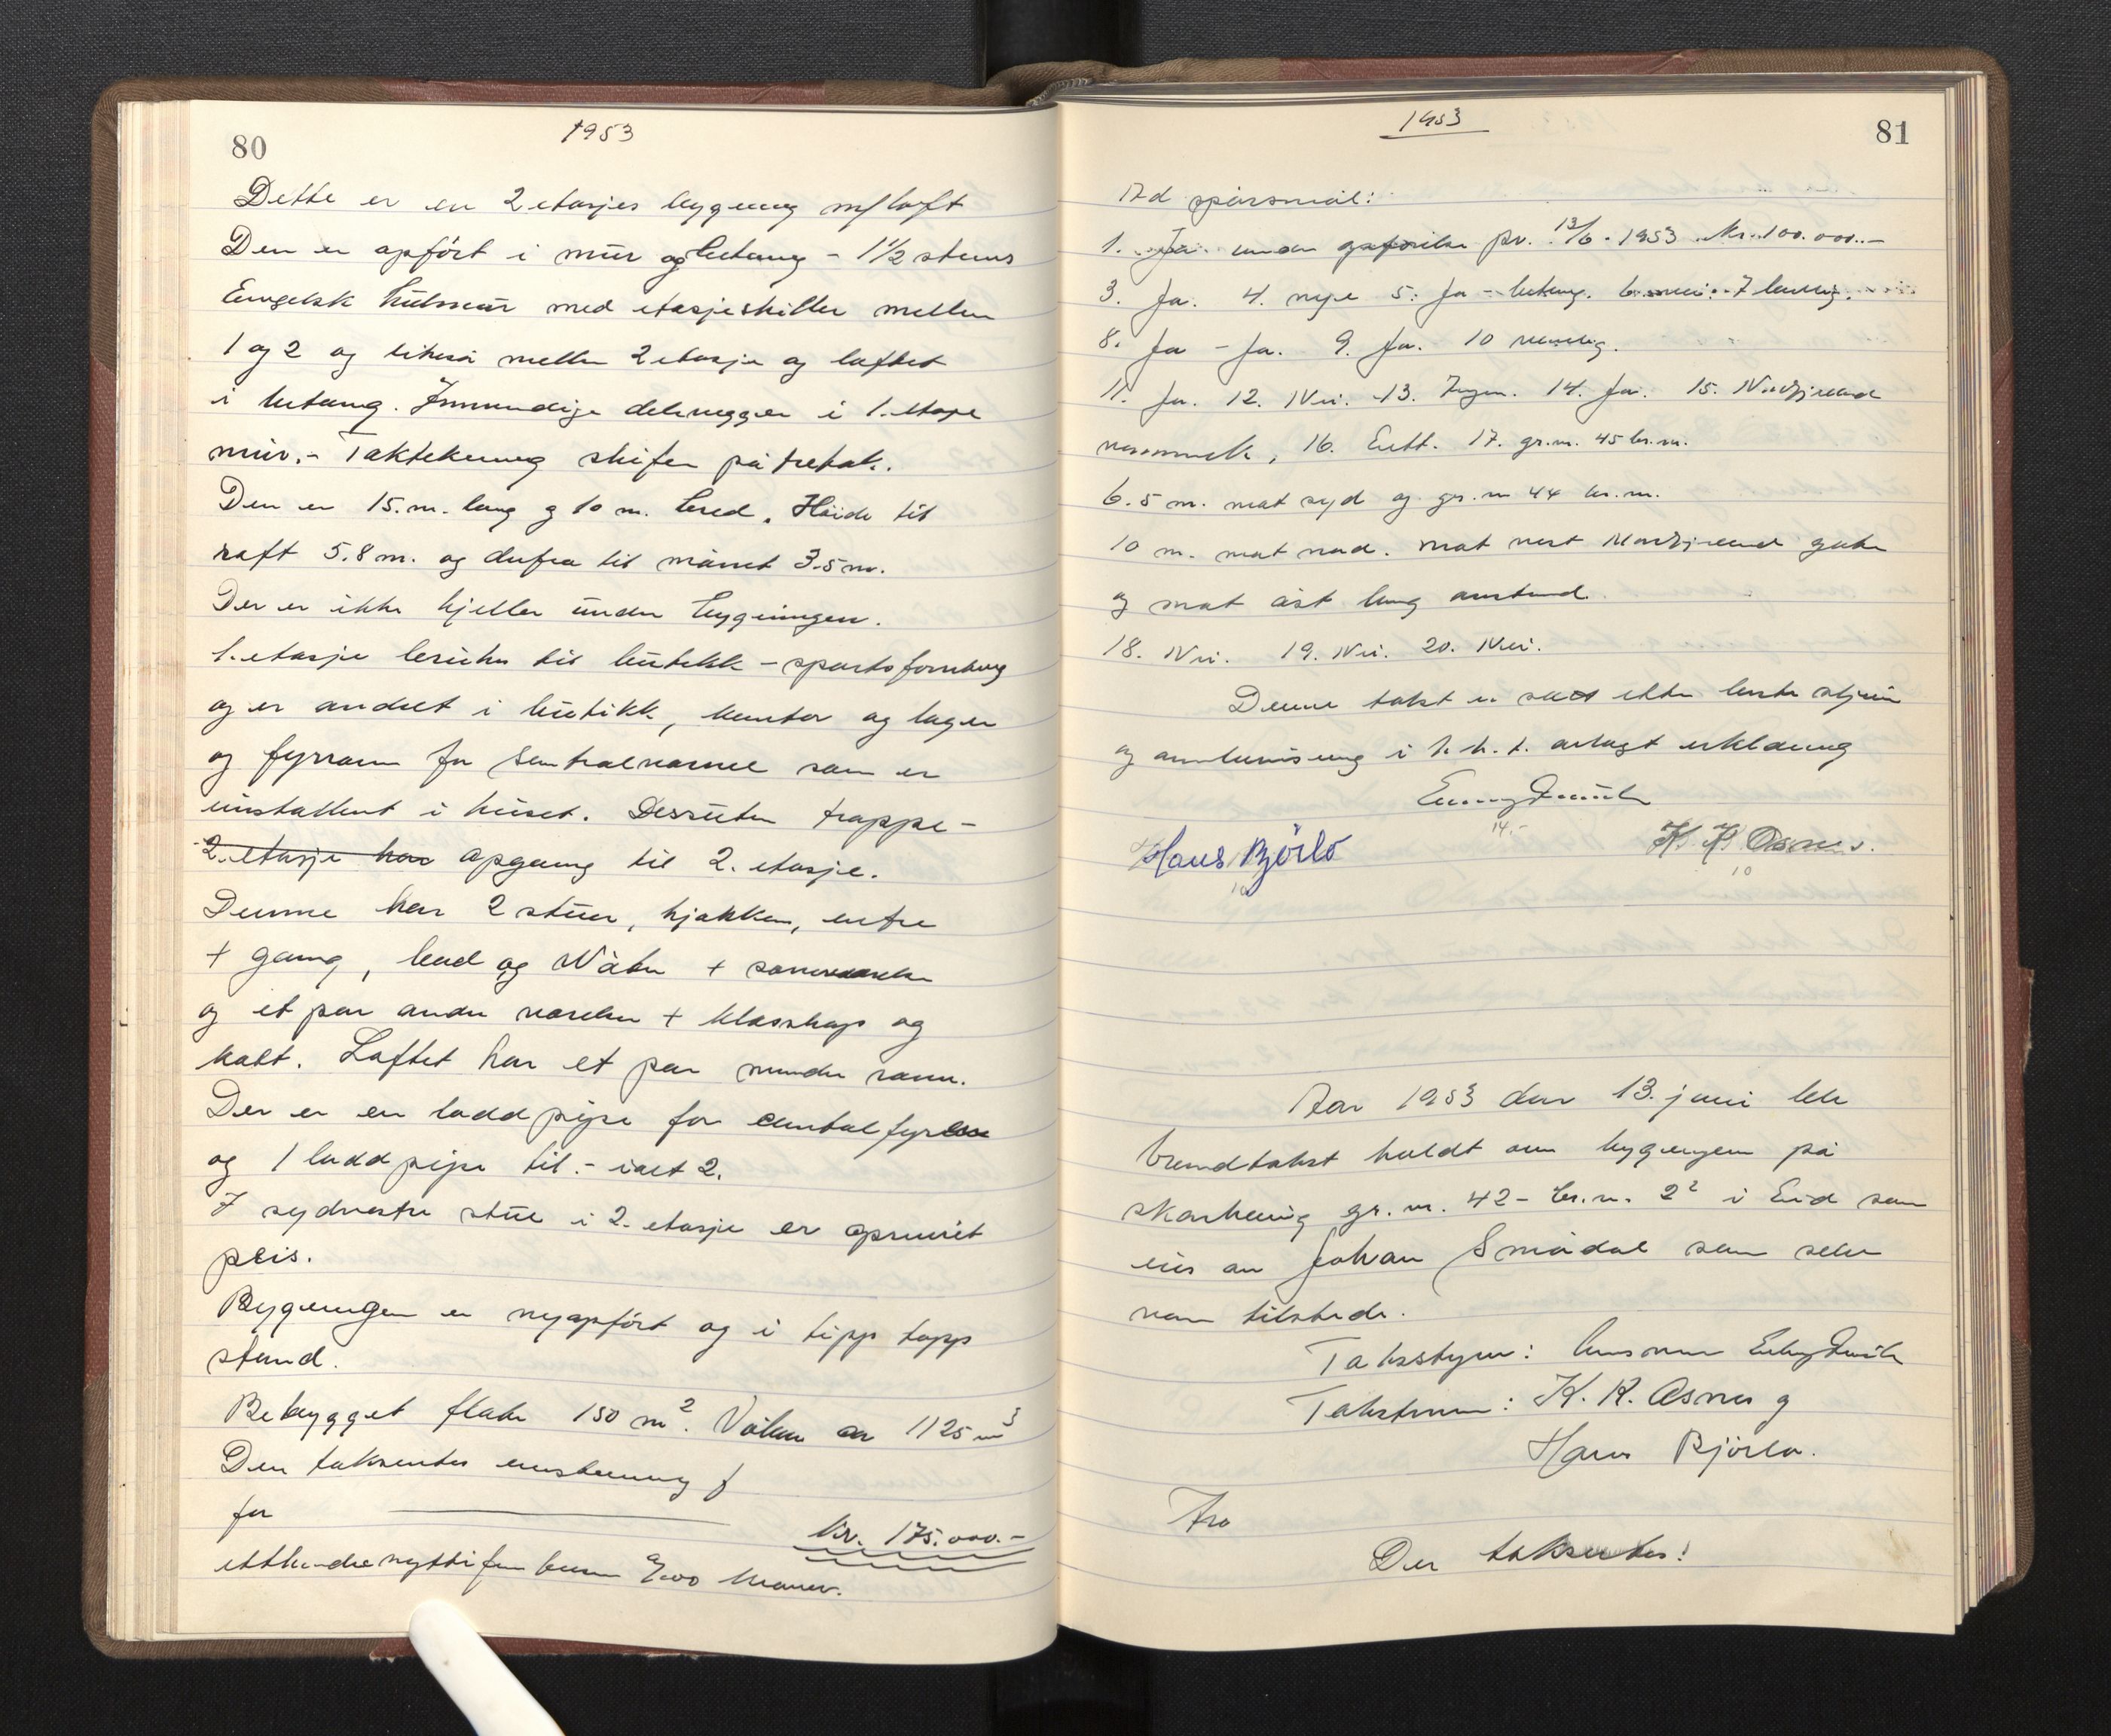 80
1953
Dette er en 2 etasjes bygning m/loft
Den er opfört i mur og betong - 1½ stens
Engelsk hulmur med etasjeskiller mellem
1 og 2 og likeså mellem 2 etasje og loftet
i betong. Innvendige delevegger i 1. etasje
mur. - Taktekning skifer på tretak.
Den er 15. m. lang og 10 m. bred. Höide til
raft 5.8 m. og derfra til mönet 3.5 m.
Der er ikke kjeller under bygningen.
1. etasje brukes til butikk - sportsforretning
og er andelt i butikk, kontor og lager
og fyrrom for sentralvarme som er
installert i huset. Dessuten trappe-
2. etasje har opgang til 2. etasje.
Denne har 2 stuer, kjøkken, entre
+ gang, bad og W
og et par andre værelser + klæsskap og
kott. Loftet har et par mindre rom.
Der er en ladd pipe for centralfyr
og 1 ladd pipe til. - ialt 2.
I sydvestre stue i 2. etasje er opmurt
peis.
Bygningen er nyopfört og i tipp topp
stand.
Bebygget flate 150 m². Volum er 1125 m³
Den takseres
for kr. 175.000.-
etthundreogsyttifem tusen 0/00 kroner.
1953
81
Ad spörsmål:
1. Ja under opförelse pr. 13/6 - 1953 Kr. 100.000.-
3. Ja. 4. nye 5. Ja - betong. 6. nei. 7
8. Ja - Ja. 9. Ja. 10 nemlig.
11. Ja. 12. Nei. 13. Ingen. 14. Ja. 15. Nordfjoreid
16. Ett. 17. gr.nr. 45 br.nr.
6.5 m. mot syd og gr. nr 44 br. nr.
10 m. mot nord. mot vest Nordfjoreid gate
og mot öst lang avstand.
18. Nei. 19. Nei. 20. Nei.
Denne takst er satt etter beste skjön
og overbevisning i h. h. t. avlagt erklæring
14.-
Hans Björlo
K. K. Osnes.
10
10
Aar 1953 den 13. juni ble
branntakst holdt over bygningen på
gr. nr. 42 - br. nr. 2² i Eid som
eies av Johan Smådal som selv
var tilstede.
Takstsyer: lensmann
Takstmenn: K. K. Osnes og
Hans Björlo.
Der takseres!